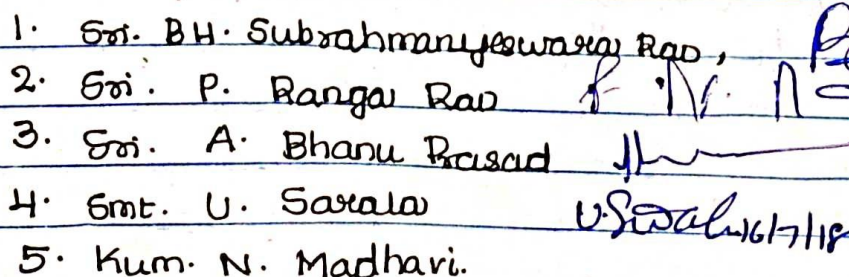 1. Sri. BH. Subrahmanyeswara Rao,
2. Sri. P. Ranga Rao
3. Sri. A. Bhanu Prasad
4. Smt. U. Sarala U. Sarala 16/7/18
5. Kum. N. Madhavi.